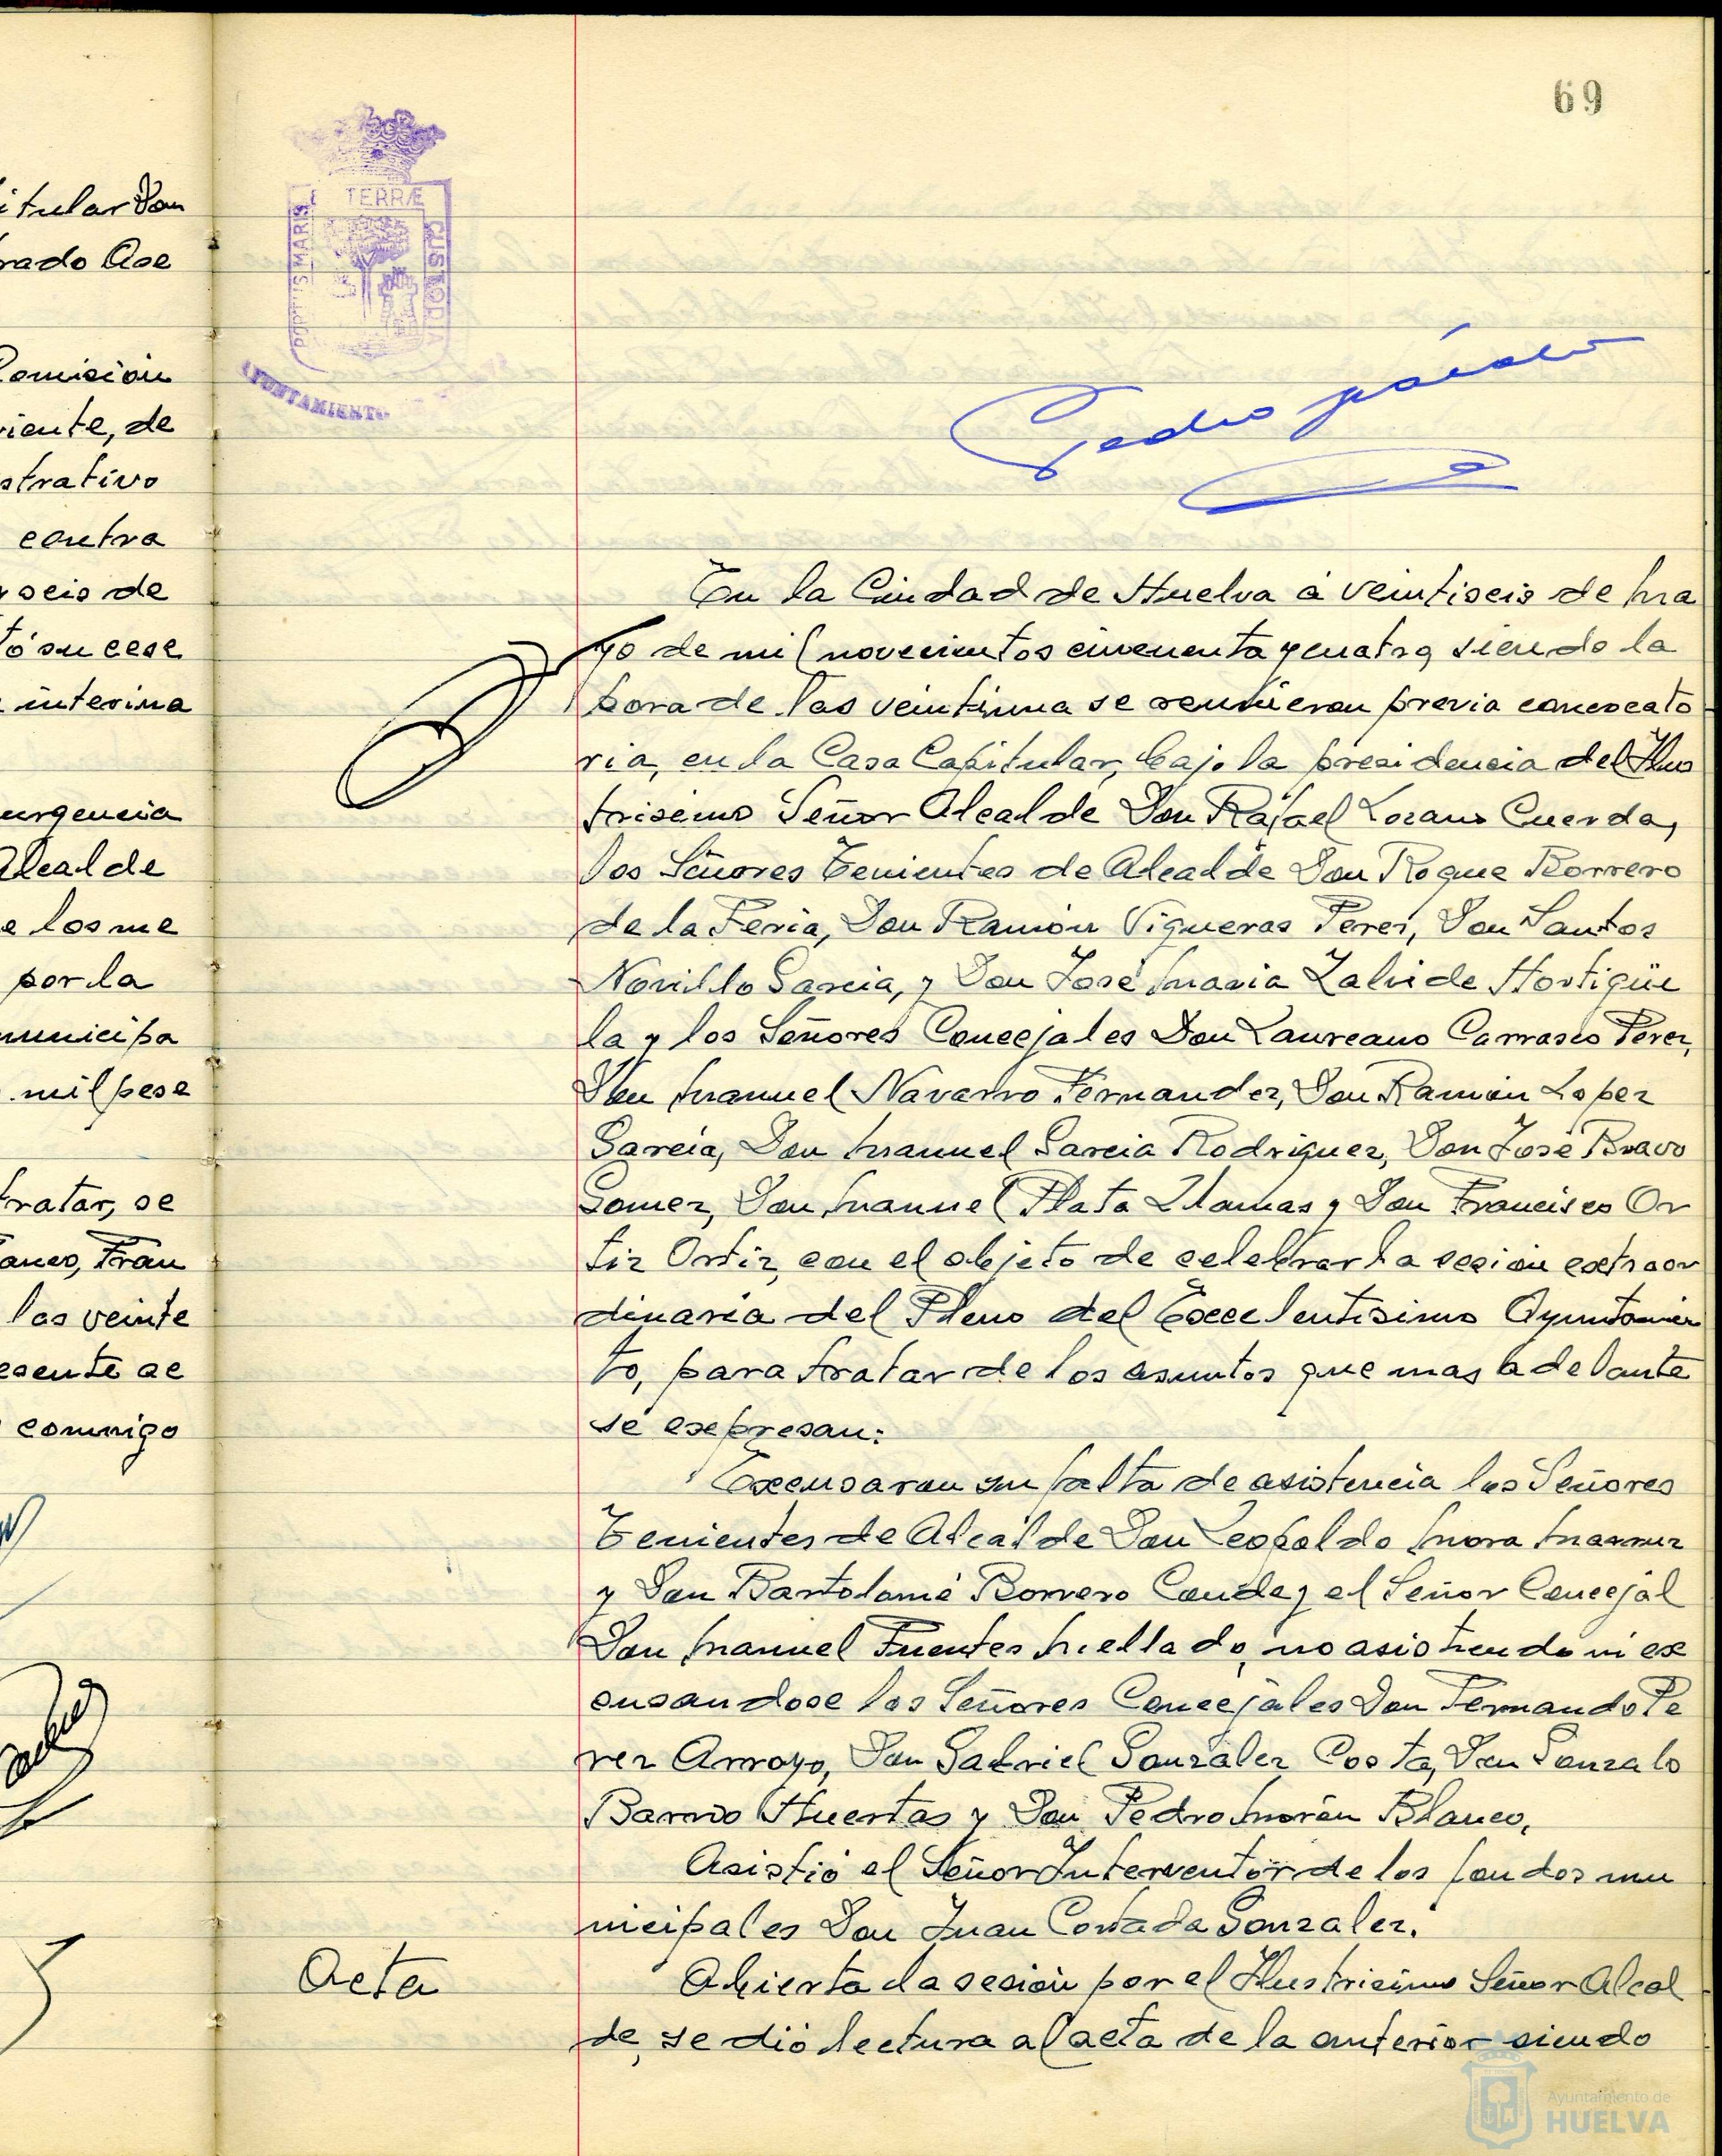 69
itular Don
rado Ase
Comisión
viente, de
strativo
contra
y seis de
tó su cese
interina
urgencia
Alcalde
e los me
por la
municipa
mil pese
tratar, se
anco, Fran
las veinte
esente ac
conmigo
TERRÆ
PORTUS MARIS
CUSTODIA
AYUNTAMIENTO
Pedro
En la Ciudad de Huelva á veintiseis de ma
yo de mil novecientos cincuenta y cuatro, siendo la
hora de las veintiuna se reunieron previa convocato
ria, en la Casa Capitular, bajo la presidencia del Ilus
trisimo Señor Alcalde Don Rafael Lozano Cuerda,
los Señores Tenientes de Alcalde Don Roque Borrero
de la Feria, Don Ramón Vigueras Perez, Don Santos
Novillo Garcia, y Don José Maria Zalvide Hortigüe
la y los Señores Concejales Don Laureano Carrasco Perez,
Don Manuel Navarro Fernandez, Don Ramón Lopez
Garcia, Don Manuel Garcia Rodriguez, Don José Bravo
Gomez, Don Manuel Plata Llamas y Don Francisco Or
tiz Ortiz, con el objeto de celebrar la sesión extraor
dinaria del Pleno del Excelentisimo Ayuntamien
to, para tratar de los asuntos que mas adelante
se expresan:
Excusaron su falta de asistencia los Señores
Tenientes de Alcalde Don Leopoldo Mora
y Don Bartolomé Borrero Conde y el Señor Concejal
Don Manuel Fuentes Mellado, no asistiendo ni ex
cusandose los Señores Concejales Don Fernando Pe
rez Arroyo, Don Gabriel Gonzalez Costa, Don Gonzalo
Barrio Huertas y Don Pedro Morón Blanco.
Asistió el Señor Interventor de los fondos mu
nicipales Don Juan Cortada Gonzalez.
Acta
Abierta la sesión por el Ilustrisimo Señor Alcal
de, se dió lectura al acta de la anterior siendo
Ayuntamiento de
HUELVA